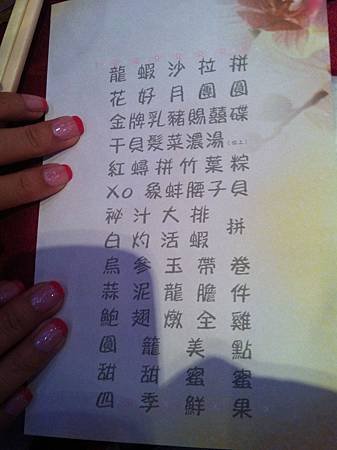 龍蝦沙拉拼
花好月團圓
金牌乳豬賜囍碟
干貝髮菜濃湯(位上)
紅蟳拼竹葉粽
XO 象蚌腰子貝
祕汁大排
拼
白灼活蝦
烏參玉帶卷
蒜泥龍膽件
鮑翅燉全雞
圓籠美點
甜甜蜜蜜
四季鮮果